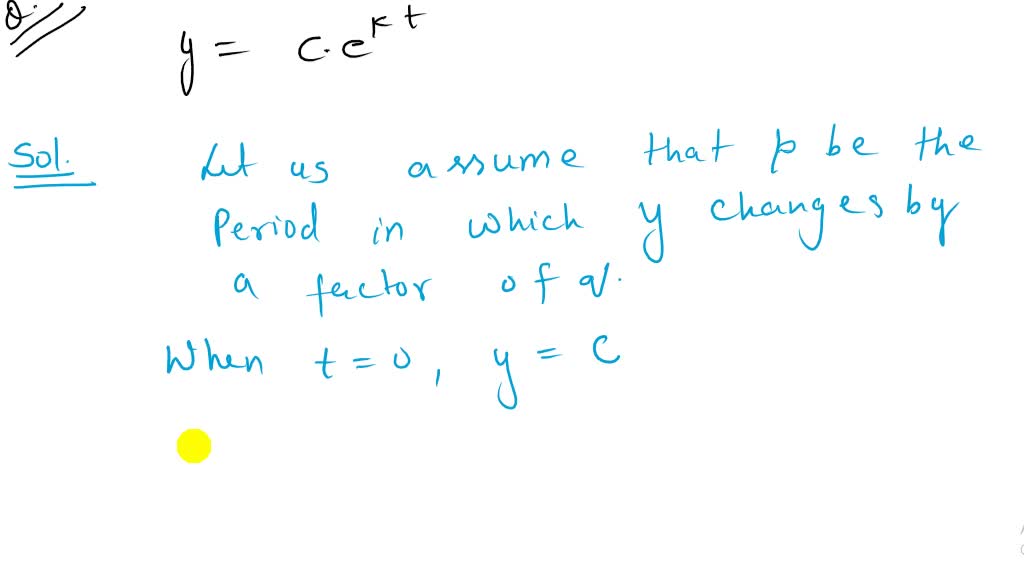 Q.
y = c.e^kt
Sol. Let us assume that p be the
Period in which y changes by
a factor of q.
When t = 0, y = C